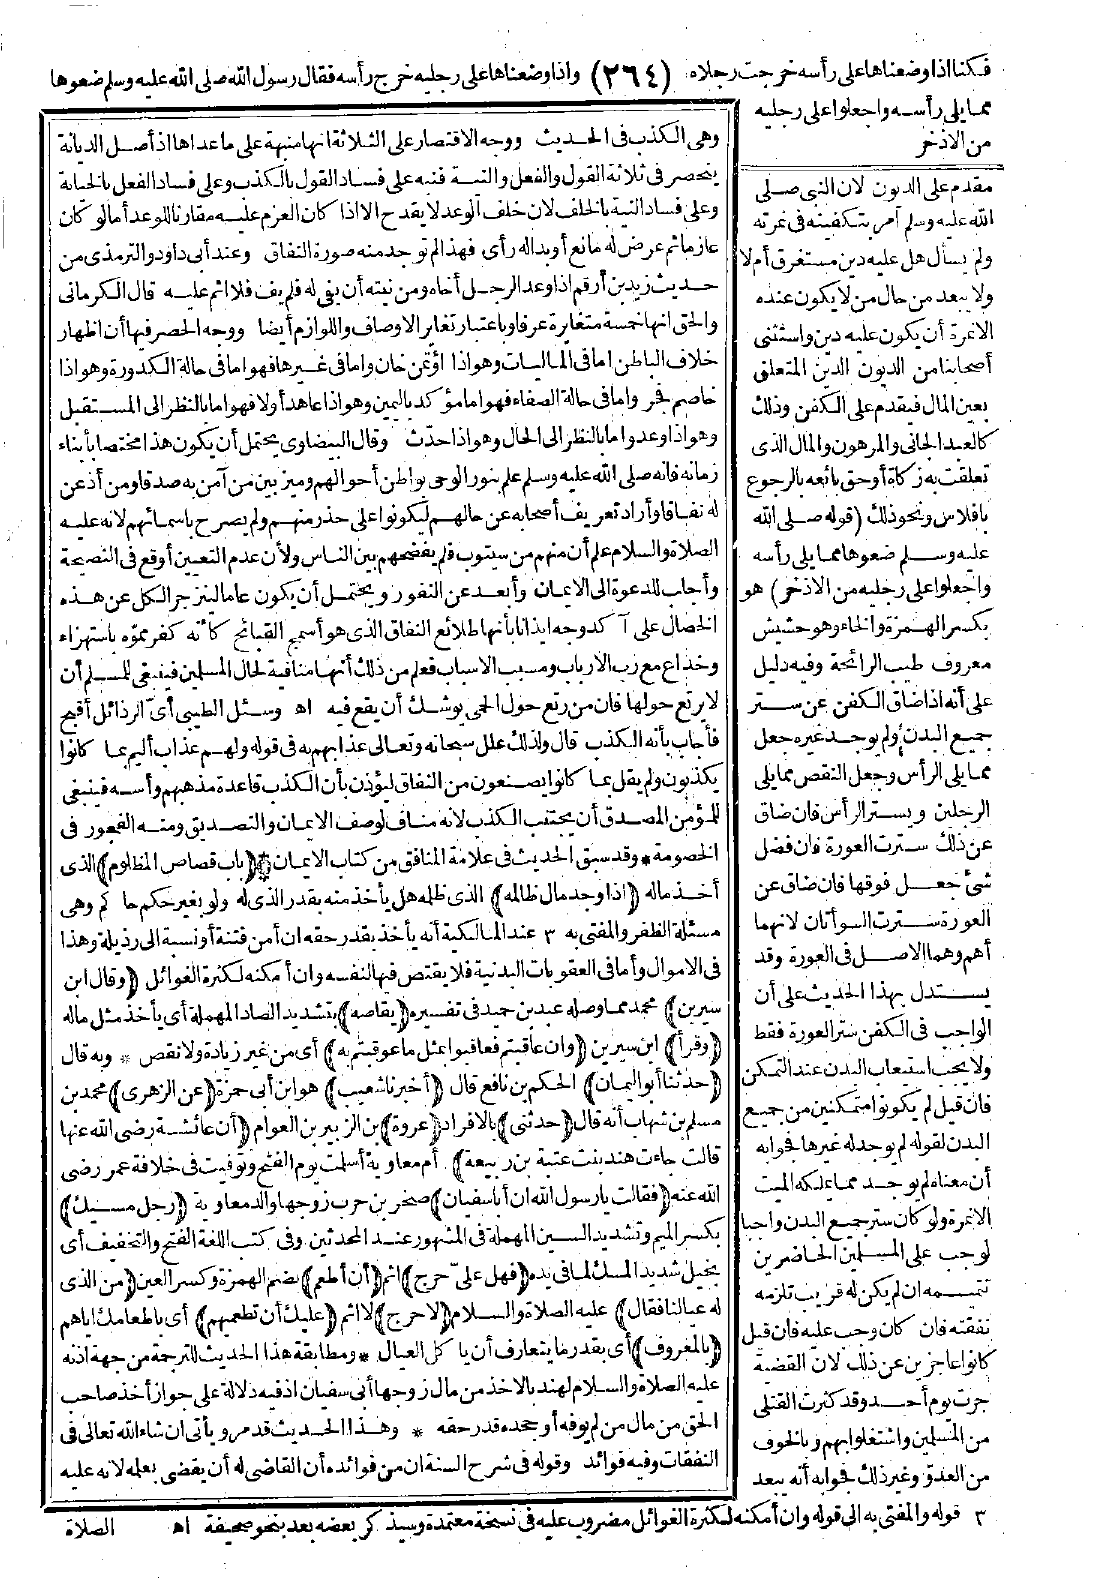 فكنا اذا وضعناها على رأسه خرجت رجلاه (٢٦٤) واذا وضعناها على رجليه خرج رأسه فقال رسول الله صلى الله عليه وسلم ضعوها
مما يلى رأسه واجعلوا على رجليه
من الاذخر
مقدم على الديون لان النبى صلى
الله عليه وسلم أمر بتكفينه فى نمرته
ولم يسأل هل عليه دين مستغرق أم لا
ولا يبعد من حال من لا يكون عنده
الا نمرة أن يكون عليه دين واستثنى
أصحابنا من الديون الدين المتعلق
بعين المال فيقدم على الكفن وذلك
كالعبد الجانى والمرهون والمال الذى
تعلقت به زكاة أو حق بائعه بالرجوع
بافلاس ونحو ذلك (قوله صلى الله
عليه وسلم ضعوها مما يلى رأسه
واجعلوا على رجليه من الاذخر) هو
بكسر الهمزة والخاء وهو حشيش
معروف طيب الرائحة وفيه دليل
على أنه اذا ضاق الكفن عن ستر
جميع البدن ولم يوجد غيره جعل
مما يلى الرأس وجعل النقص مما يلى
الرجلين ويستر الرأس فان ضاق
عن ذلك سترت العورة فان فضل
شئ جعل فوقها فان ضاق عن
العورة سترت السوأتان لانهما
أهم وهما الاصل فى العورة وقد
يستدل بهذا الحديث على أن
الواجب فى الكفن ستر العورة فقط
ولا يجب استيعاب البدن عند التمكن
فان قيل لم يكونوا متمكنين من جميع
البدن لقوله لم يوجد له غيرها فجوابه
أن معناه لم يوجد مما يملكه الميت
الا نمرة ولو كان ستر جميع البدن واجبا
لوجب على المسلمين الحاضرين
تتميمه ان لم يكن له قريب تلزمه
نفقته فان كان وجب عليه فان قيل
كانوا عاجزين عن ذلك لان القضية
جرت يوم أحد وقد كثرت القتلى
من المسلمين واشتغلوا بهم وبالخوف
من العدوّ وغير ذلك فجوابه أنه يبعد
وهى الكذب فى الحديث ووجه الاقتصار على الثلاثة انها منبهة على ما عداها اذ أصل الديانة
ينحصر فى ثلاثة القول والفعل والنية فنبه على فساد القول بالكذب وعلى فساد الفعل بالخيانة
وعلى فساد النية بالخلف لان خلف الوعد لا يقدح الا اذا كان العزم عليه مقارنا للوعد أما لو كان
عازما ثم عرض له مانع أو بدا له رأى فهذا لم توجد منه صورة النفاق وعند أبى داود والترمذى من
حديث زيد بن أرقم اذا وعد الرجل أخاه ومن نيته أن يفى له فلم يف فلا اثم عليه قال الكرمانى
والحق انها خمسة متغايرة عرفا وباعتبار تغاير الاوصاف واللوازم أيضا ووجه الحصر فيها أن اظهار
خلاف الباطن اما فى الماليات وهو اذا اؤتمن خان واما فى غيرها فهو اما فى حالة الكدورة وهو اذا
خاصم فجر واما فى حالة الصفاء فهو اما مؤكد باليمين وهو اذا عاهد أولا فهو اما بالنظر الى المستقبل
وهو اذا وعد واما بالنظر الى الحال وهو اذا حدّث وقال البيضاوى يحتمل أن يكون هذا مختصا بأبناء
زمانه فانه صلى الله عليه وسلم علم بنور الوحى بواطن أحوالهم وميز بين من آمن به صدقا ومن أذعن
له نفاقا وأراد تعريف أصحابه عن حالهم ليكونوا على حذر منهم ولم يصرح باسمائهم لانه عليه
الصلاة والسلام علم أن منهم من سيتوب فلم يفضحهم بين الناس ولأن عدم التعيين أوقع فى النصيحة
وأجاب للدعوة الى الايمان وأبعد عن النفور ويحتمل أن يكون عاما لينزجر الكل عن هذه
الخصال على آكد وجه ايذانا بأنها طلائع النفاق الذى هو أسمج القبائح كأنه كفر مموّه باستهزاء
وخداع مع رب الارباب ومسبب الاسباب فعلم من ذلك أنها منافية لحال المسلمين فينبغى للمسلم أن
لا يرتع حولها فان من رتع حول الحمى يوشك أن يقع فيه اه وسئل الطيبى أىّ الرذائل أقبح
فأجاب بأنه الكذب قال ولذلك علل سبحانه وتعالى عذابهم به فى قوله ولهم عذاب أليم بما كانوا
يكذبون ولم يقل بما كانوا يصنعون من النفاق ليؤذن بأن الكذب قاعدة مذهبهم وأسه فينبغى
للمؤمن المصدق أن يجتنب الكذب لانه مناف لوصف الايمان والتصديق ومنه الفجور فى
الخصومة * وقد سبق الحديث فى علامة المنافق من كتاب الايمان * (باب قصاص المظلوم) الذى
أخذ ماله (اذا وجد مال ظالمه) الذى ظلمه هل يأخذ منه بقدر الذى له ولو بغير حكم حاكم وهى
مسئلة الظفر والمفتى به ٣ عند المالكية أنه يأخذ بقدر حقه ان أمن فتنة أو نسبة الى رذيلة وهذا
فى الاموال وأما فى العقوبات البدنية فلا يقتص فيها لنفسه وان أمكنه لكثرة الغوائل (وقال ابن
سيرين) محمد مما وصله عبد بن حميد فى تفسيره (يقاصه) بتشديد الصاد المهملة أى يأخذ مثل ماله
(وقرأ) ابن سيرين (وان عاقبتم فعاقبوا بمثل ما عوقبتم به) أى من غير زيادة ولا نقص * وبه قال
(حدثنا أبو اليمان) الحكم بن نافع قال (أخبرنا شعيب) هو ابن أبى حمزة (عن الزهرى) محمد بن
مسلم بن شهاب أنه قال (حدثنى) بالافراد (عروة) بن الزبير بن العوام (أن عائشة رضى الله عنها
قالت جاءت هند بنت عتبة بن ربيعة) أم معاوية أسلمت يوم الفتح وتوفيت فى خلافة عمر رضى
الله عنه (فقالت يا رسول الله ان أبا سفيان) صخر بن حرب زوجها والد معاوية (رجل مسيك)
بكسر الميم وتشديد السين المهملة فى المشهور عند المحدثين وفى كتب اللغة الفتح والتخفيف أى
بخيل شديد المسك لما فى يده (فهل علىّ حرج) اثم (أن أطعم) بضم الهمزة وكسر العين (من الذى
له عيالنا فقال) عليه الصلاة والسلام (لا حرج) لا اثم (عليك أن تطعميهم) أى باطعامك اياهم
(بالمعروف) أى بقدر ما يتعارف أن يأكل العيال * ومطابقة هذا الحديث للترجمة من جهة اذنه
عليه الصلاة والسلام لهند بالاخذ من مال زوجها أبى سفيان اذ فيه دلالة على جواز أخذ صاحب
الحق من مال من لم يوفه أو جحده قدر حقه * وهذا الحديث قد مر ويأتى ان شاء الله تعالى فى
النفقات وفيه فوائد وقوله فى شرح السنة ان من فوائده أن القاضى له أن يقضى بعلمه لانه عليه
٣ قوله والمفتى به الى قوله وان أمكنه لكثرة الغوائل مضروب عليه فى نسخة معتمدة وسيذكر بعضه بعد بنحو صحيفة اه الصلاة